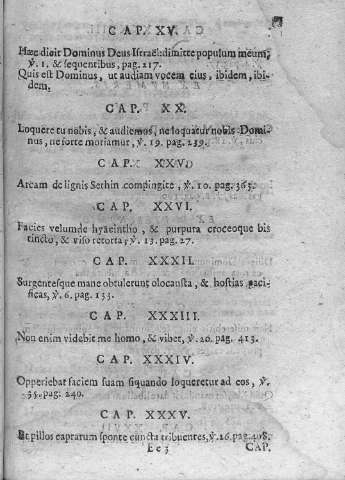 CAP. XV.
Hæc dicit Dominus Deus Israel: dimitte populum meum,
℣. 1. & sequentibus, pag. 217.
Quis est Dominus, ut audiam vocem eius, ibidem, ibi-
dem.
CAP. XX.
Loquere tu nobis, & audiemus, ne loquatur nobis Domi-
nus, ne forte moriamur, ℣. 19. pag. 239.
CAP. XXV.
Arcam de lignis Sethin compingite, ℣. 10. pag. 363.
CAP. XXVI.
Facies velum de hyacintho, & purpura croceoque bis
tincto, & viso retorta, ℣. 13. pag. 27.
CAP. XXXII.
Surgentesque mane obtulerunt olocausta, & hostias paci-
ficas, ℣. 6. pag. 133.
CAP. XXXIII.
Non enim videbit me homo, & vivet, ℣. 20. pag. 413.
CAP. XXXIV.
Opperiebat faciem suam siquando loqueretur ad eos, ℣.
35. pag. 240.
CAP. XXXV.
Et pillos caprarum sponte cuncta tribuentes, ℣. 26. pag. 408.
Ee 3 CAP.